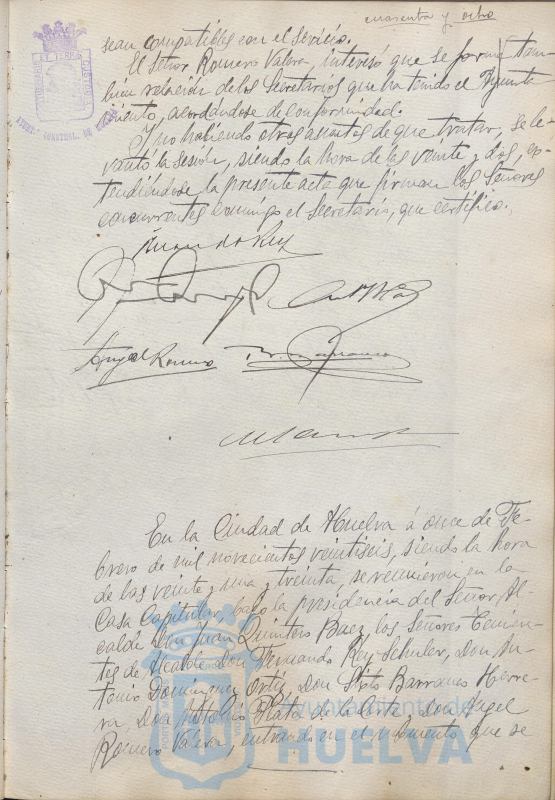 cuarenta y ocho
sean compatibles con el servicio.
El Señor Romero Valera, interesó que se forme tam-
bién relación de los Secretarios que ha tenido el Ayunta-
miento, acordándose de conformidad.
Y no habiendo otros asuntos de que tratar, se le-
vantó la sesión, siendo la hora de las veinte y dos, ex-
tendiéndose la presente acta que firman los Señores
concurrentes conmigo el Secretario, que certifico.
Fernando Rey
Angel Romero B. Barranco
En la Ciudad de Huelva á once de Fe-
brero de mil novecientos veintiseis, siendo la hora
de las veinte y una y treinta, se reunieron en la
Casa Capitular, bajo la presidencia del Señor Al-
calde Don Juan Quintero Baez, los Señores Tenien-
tes de Alcalde Don Fernando Rey Schuler, Don An-
tonio Dominguez Ortiz, Don Barranco Herre-
ra, Don Antonio Plata de la Corte y Don Angel
Romero Valera, entrando en el momento que se
Ayuntamiento de
HUELVA